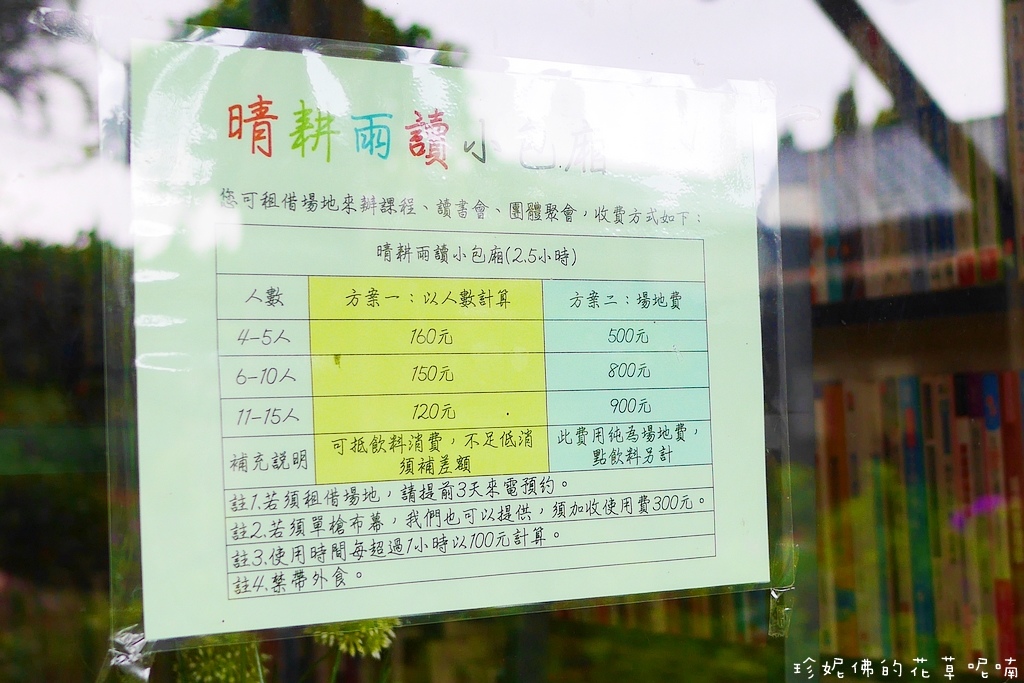 晴耕雨讀小包廂
您可租借場地來辦課程、讀書會、團體聚會，收費方式如下：
晴耕雨讀小包廂(2.5小時)
人數 方案一：以人數計算 方案二：場地費
4-5人 160元 500元
6-10人 150元 800元
11-15人 120元 900元
補充說明 可抵飲料消費，不足低消須補差額 此費用純為場地費，點飲料另計
註1.若須租借場地，請提前3天來電預約。
註2.若須單槍布幕，我們也可以提供，須加收使用費300元。
註3.使用時間每超過1小時以100元計算。
註4.禁帶外食。
珍妮佛的花草呢喃